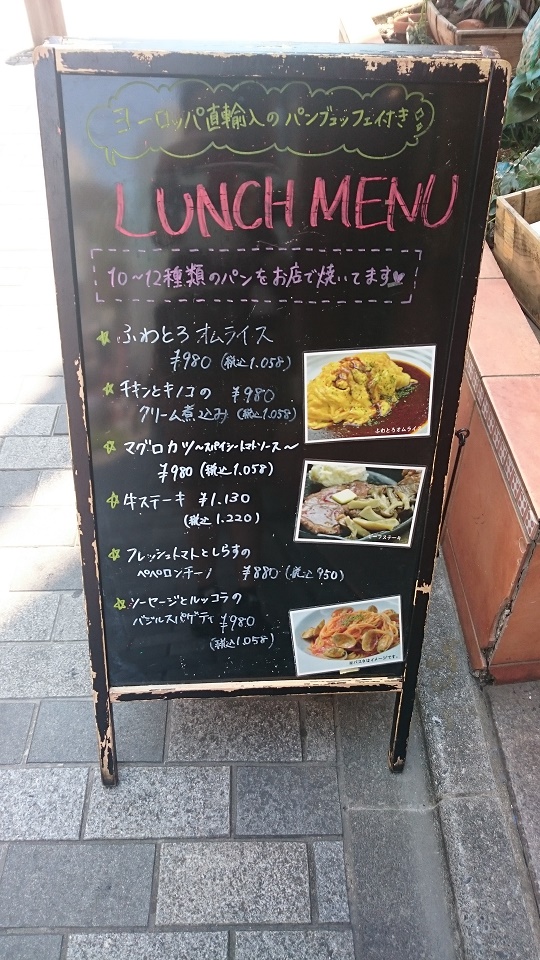 ヨーロッパ直輸入のパンブュッフェ付き
LUNCH MENU
10～12種類のパンをお店で焼いてます
ふわとろオムライス
¥980 (税込1.058)
チキンとキノコの ¥980
クリーム煮込み (税込1.058)
マグロカツ～スパイシートマトソース～
¥980 (税込1.058)
牛ステーキ ¥1.130
(税込 1.220)
フレッシュトマトとしらすの
ペペロンチーノ ¥880 (税込 950)
ソーセージとルッコラの
バジルスパゲティ ¥980
(税込1.058)
ふわとろオムライス
ビーフステーキ
※パスタはイメージです。